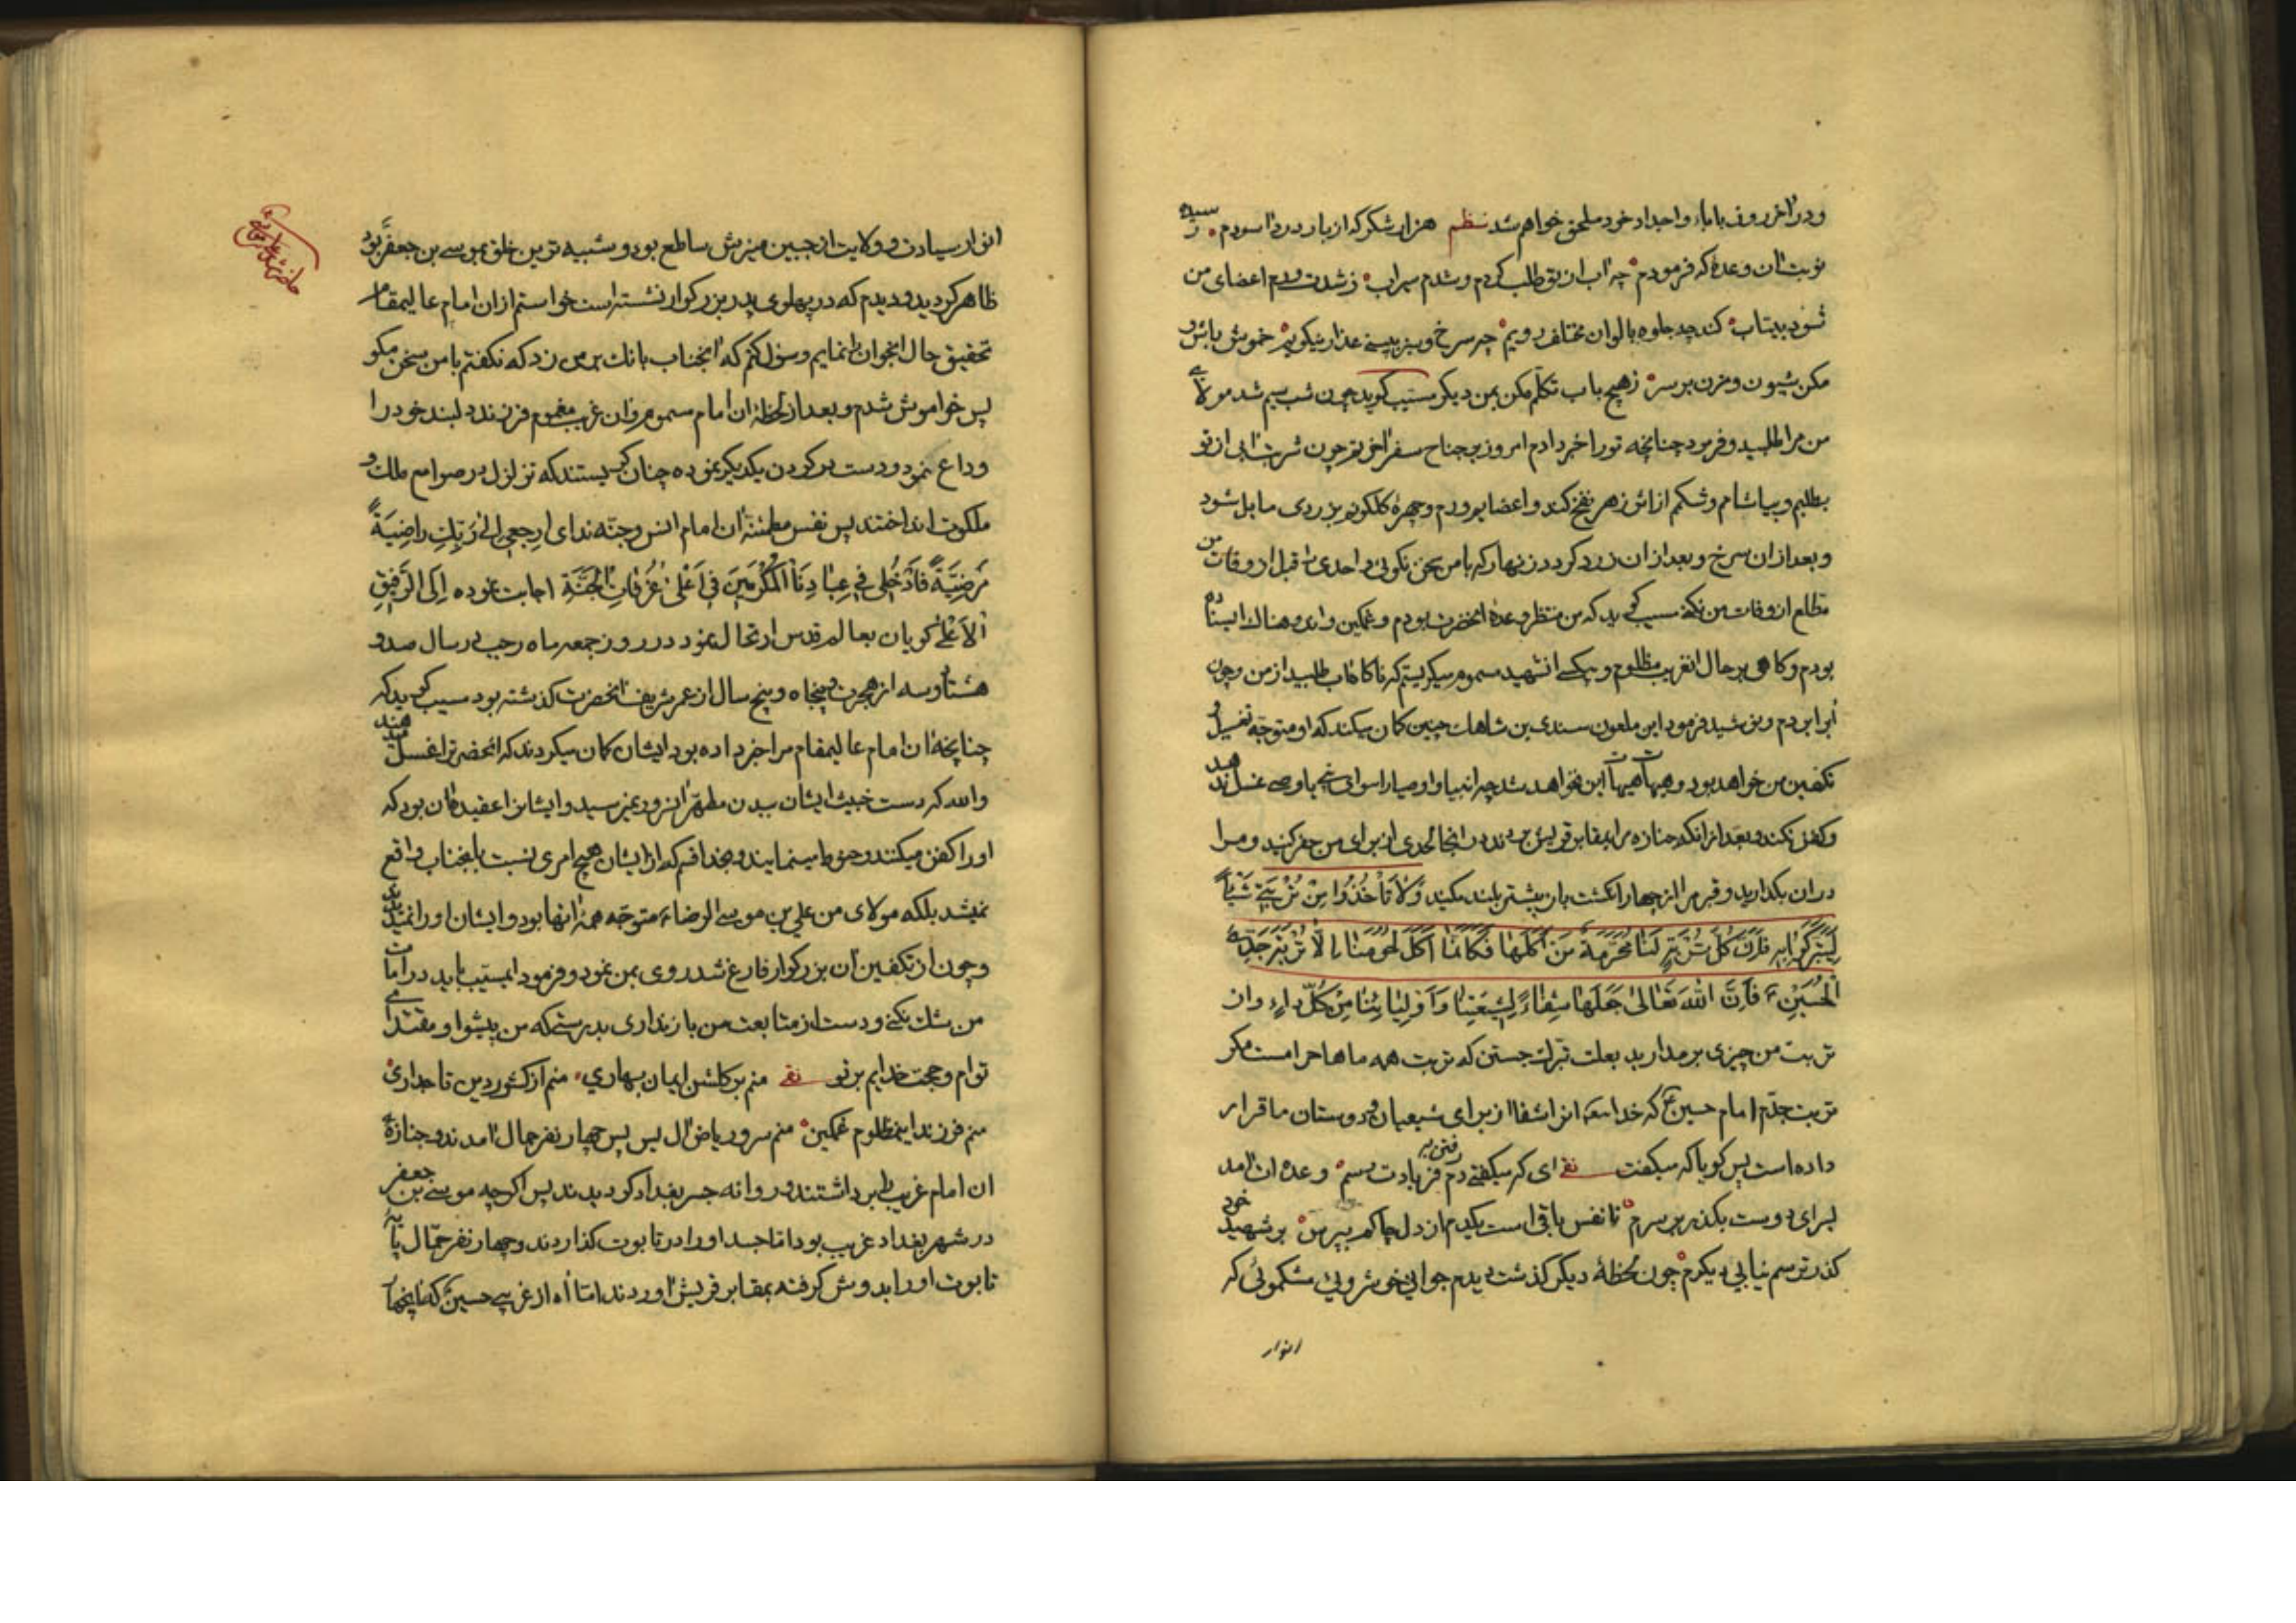 ودر آخر روز باباء واجداد خود ملحق خواهم شد نظم هزار شکر که از بار درد آسودم رسیده
نوبت آن وعدهٔ که فرمودم چه آب از تو طلب کردم و شدم سیراب ز شدت ورم اعضای من
شود بیتاب کند چه جلوه بالوان مختلف رویم چه سرخ و سبز ببینی عذار نیکویم خموش باش و
مکن شیون و مزن بر سر ز هیچ باب تکلم مکن بمن دیگر مسیب کوید چون شب سیم شد مولای
من مرا طلبید و فرمود چنانچه تورا خبر دادم امروز بر جناح سفر آخرتم چون شربت آبی از تو
بطلبم و بیاشامم و شکم از اثر زهر نفخ کند و اعضا بورم و چهرهٔ کلکونم بزردی مایل شود
و بعد از آن سرخ و بعد از آن زرد کردد زنهار که با من سخن نکوئی و احدی را قبل از وفات من
مطلع از وفات من نکنی مسیب کوید که من منتظر وعدهٔ آنحضرت بودم و غمکین و اندوهناک ایستاده
بودم و کاهی بر حال آن غریب مظلوم و بیکسی آن شهید مسموم میکریستم که ناکاه آب طلبید از من و چون
آب را بردم و نوشید فرمود این ملعون سندی بن شاهک چنین کمان میکند که او متوجه تغسیل و
تکفین من خواهد بود و هیهات هیهات این نخواهد شد چه انبیا و اوصیا را سوای نبی یا وصی غسل ندهد
و کفن نکند و بعد از آنکه جنازه مرا بمقابر قریش برند در آنجا لحدی از برای من حفر کنید و مرا
در آن بکذارید و قبر مرا از چهار انکشت باز بیشتر بلند مکنید وَلا تَأخُذُوا مِن تُربَتی شَیئاً
لِتَبَرَّکُوا بِهِ فَاِنَّ کُلَّ تُربَةٍ لَنا مُحَرَّمَةٌ مَن اَکَلَها فَکَاَنَّما اَکَلَ لُحُومَنا اِلّا تُربَةَ جَدِّیَ
الحُسَینِ ع فَاِنَّ اللهَ تَعالی جَعَلَها شِفاءً لِشیعَتِنا وَ اَولِیائِنا مِن کُلِّ داءٍ و از
تربت من چیزی بر مدارید بعلت تبرک جستن که تربت همه ماها حرامست مکر
تربت جدم امام حسین ع که خدا آنرا شفا از برای شیعیان و دوستان ما قرار
داده است پس کویا که میکفت ای که میکفتی دم رفتن به فریادت رسم وعده آن آمد
برای دوست بکذر بر سرم تا نفس باقی است یکدم از دل چاکم بپرس بر شهید خود
کذر ترسم نیابی دیکرم چون لحظهٔ دیکر کذشت دیدم جوانی خوشروی مشکموئی که
انوار
انوار سیادت و ولایت از جبین منیرش ساطع بود و شبیه ترین خلق بموسی بن جعفر بود
ظاهر کردید و دیدم که در پهلوی پدر بزرکوار نشسته است خواستم از آن امام عالیمقام
تحقیق حال آنجوان را نمایم و سؤال کنم که آنجناب بانک بر من زد که نکفتم با من سخن مکو
پس خواموش شدم و بعد از لحظهٔ آن امام مسموم و آن غریب مغموم فرزند دلبند خود را
وداع نمود و دست بر کردن یکدیکر نموده چنان کریستند که تزلزل بر صوامع ملک و
ملکوت انداختند پس نفس مطمئنهٔ آن امام انس و جنه ندای ارجعی الی رَبِّکِ راضِیَةً
مَرضِیَّةً فَادخُلی فی عِبادِنَا المُکرَمینَ فی اَعلی غُرُفاتِ الجَنَّةِ اجابت نموده اِلَی الرَّفیقِ
الاَعلی کویان بعالم قدس ارتحال نمود در روز جمعه ماه رجب در سال صد و
هشتاد و سه از هجرت و پنجاه و پنج سال از عمر شریف آنحضرت کذشته بود مسیب کوید که
چنانچه آن امام عالیمقام مرا خبر داده بود ایشان کمان میکردند که آنحضرت را غسل میدهند
والله که دست خبیث ایشان ببدن مطهر آنسرور نمیرسید و ایشانرا عقیده آن بود که
اورا کفن میکنند و حنوط مینمایند و بخدا قسم که از ایشان هیچ امری نسبت بآنجناب واقع
نمیشد بلکه مولای من علی بن موسی الرضا ع متوجه همهٔ آنها بود و ایشان اورا نمیدیدند
و چون از تکفین آن بزرکوار فارغ شد روی بمن نمود و فرمود ایمسیب باید در امامت
من شک نکنی و دست از متابعت من باز نداری بدرستی که من پیشوا و مقتدای
توام و حجت خدایم بر تو منم بر کلشن ایمان بهاری منم از کشور دین تاجداری
منم فرزند اینمظلوم غمکین منم سرور ریاض آل یس پس چهار نفر حمال آمدند و جنازهٔ
آن امام غریب را برداشتند و روانه جسر بغداد کردیدند پس اکرچه موسی بن جعفر
در شهر بغداد غریب بود اما جسد اورا در تابوت کذاردند و چهار نفر حمّال پایهٔ
تابوت اورا بدوش کرفته بمقابر قریش آوردند اما آه از غریبی حسین